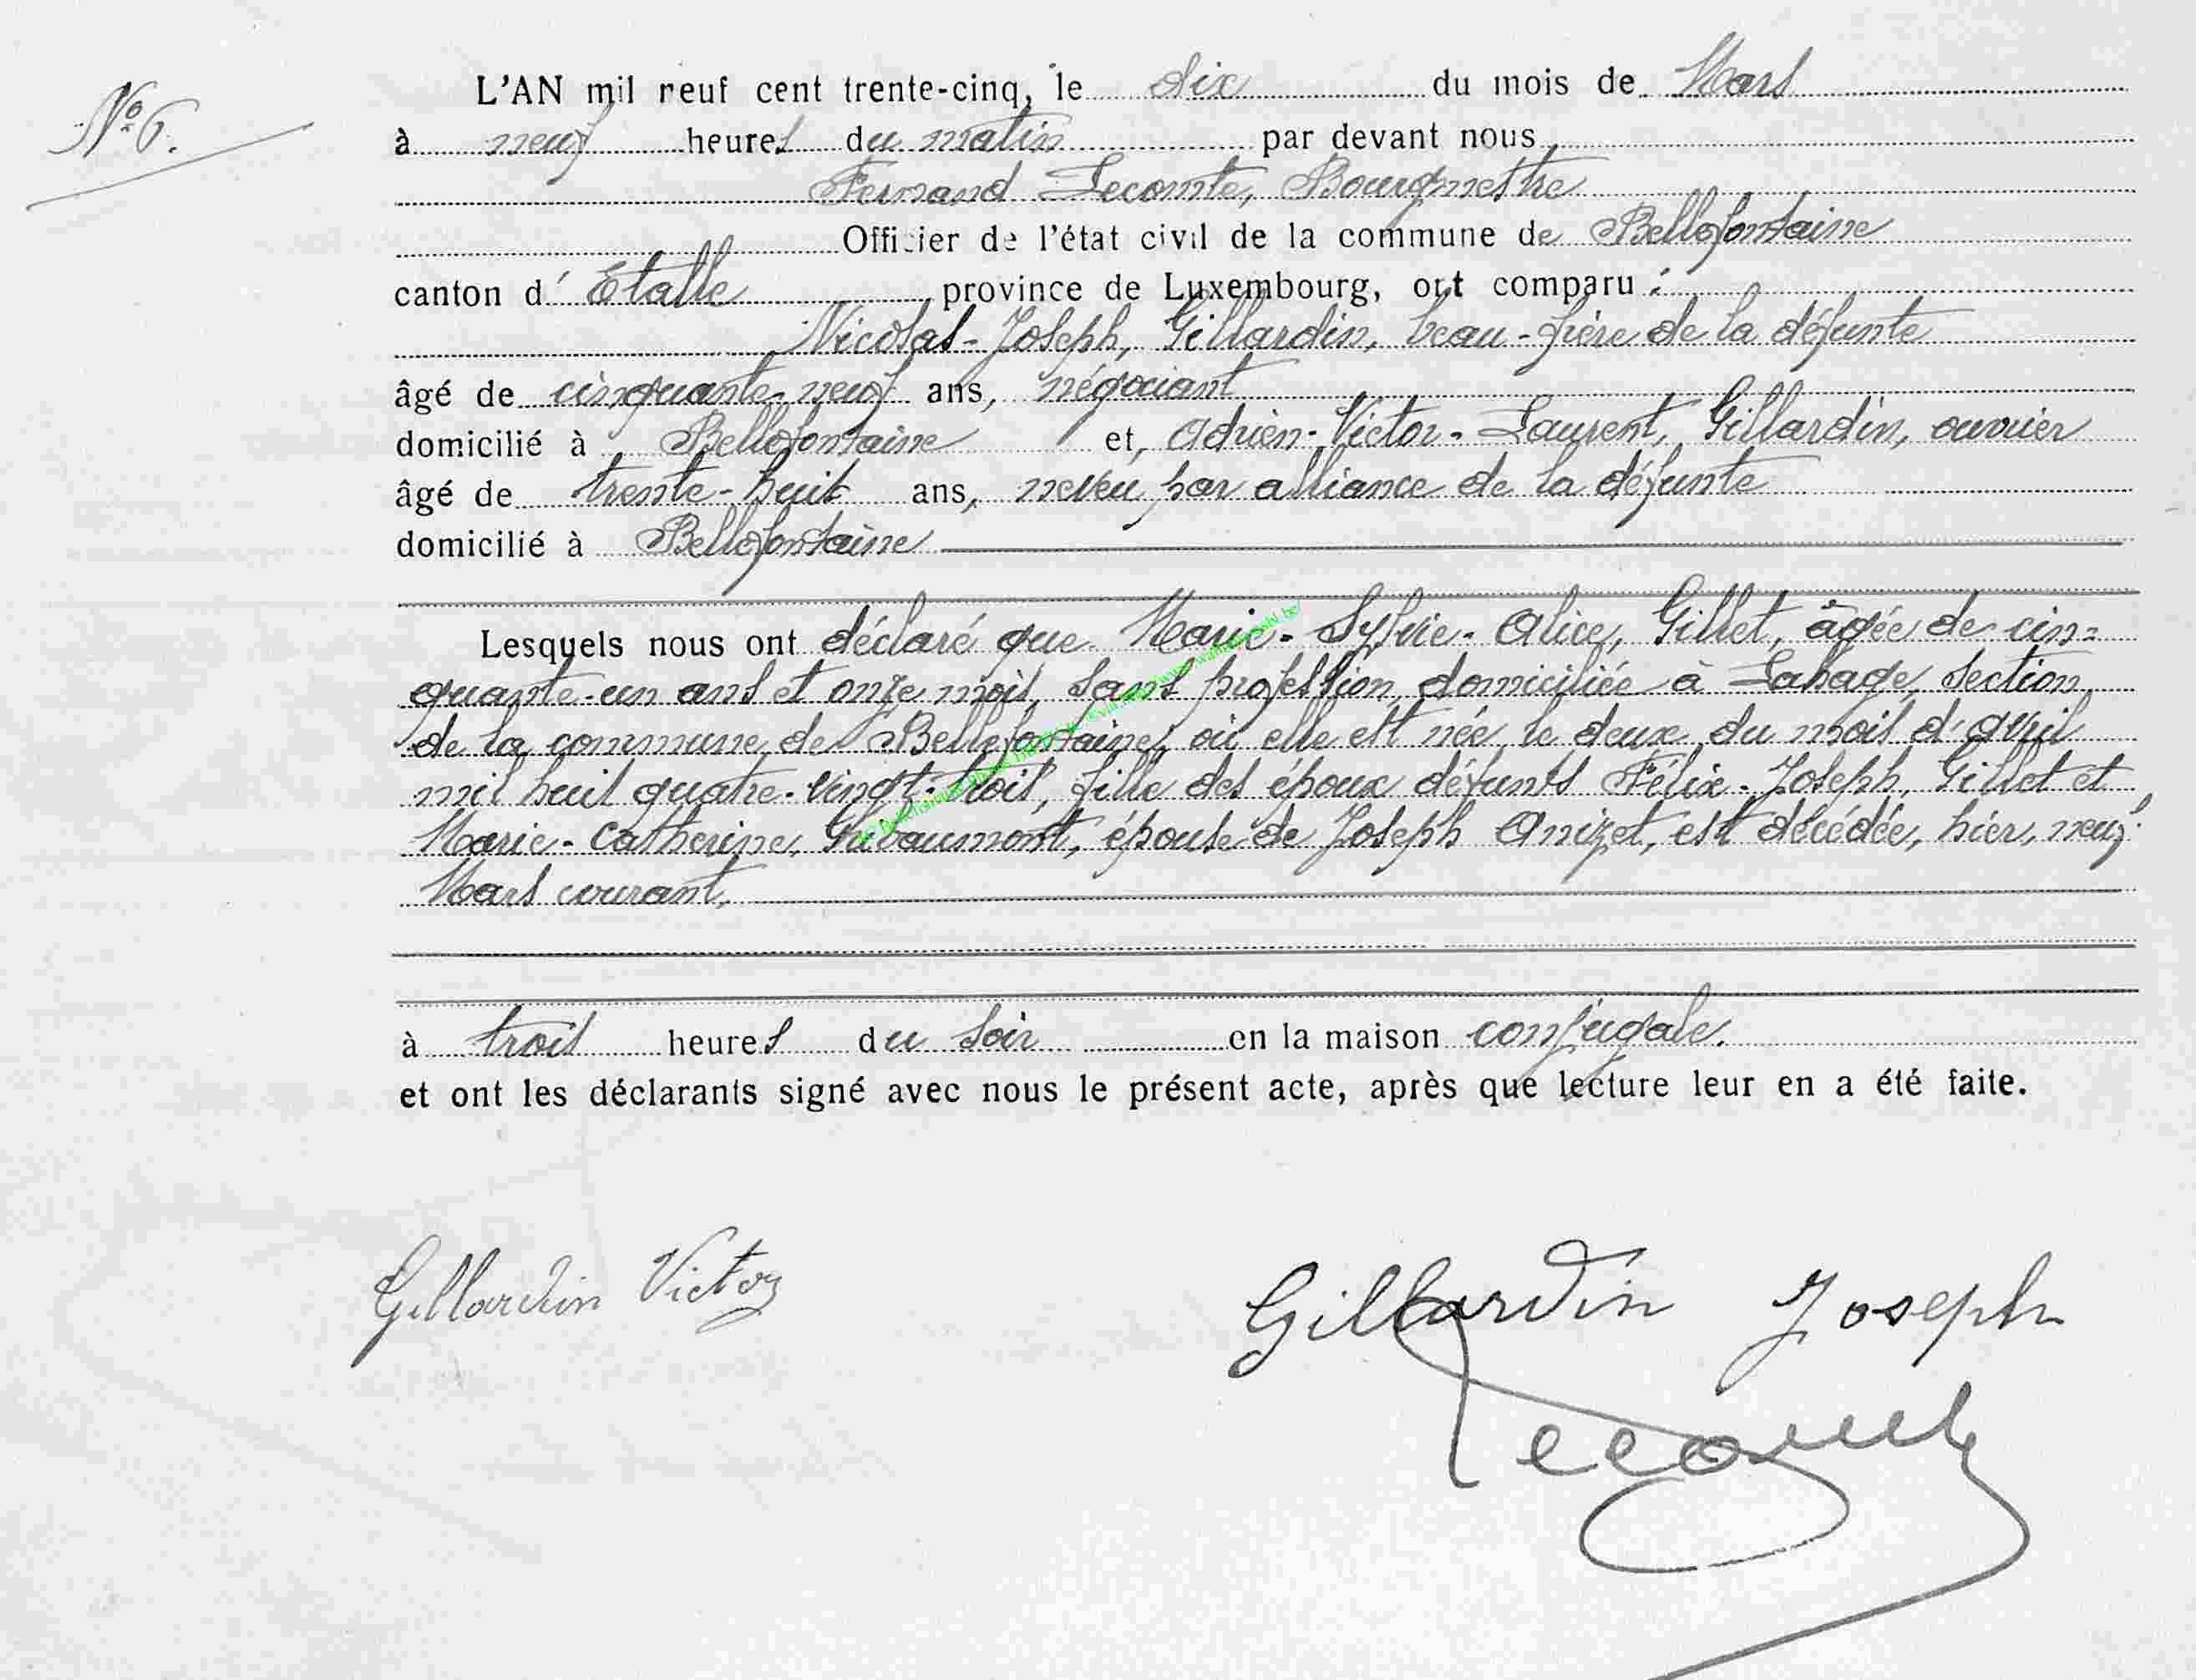 N° 6.
L'AN mil neuf cent trente-cinq, le dix du mois de Mars
à neuf heures du matin par devant nous,
Fernand Lecomte, Bourgmestre
Officier de l'état civil de la commune de Bellefontaine
canton d' Etalle province de Luxembourg, ont comparu :
Nicolas-Joseph, Gillardin, beau-frère de la défunte
âgé de cinquante-neuf ans, négociant
domicilié à Bellefontaine et, Adrien-Victor-Laurent, Gillardin, ouvrier
âgé de trente-huit ans, neveu par alliance de la défunte
domicilié à Bellefontaine
Lesquels nous ont déclaré que Marie-Sylvie-Alice, Gillet, âgée de cin=
quante-un ans et onze mois, sans profession, domiciliée à Lahage, section
de la commune de Bellefontaine, où elle est née le deux du mois d'avril
mil huit quatre-vingt-trois, fille des époux défunts Félix-Joseph, Gillet et
Marie-Catherine, Guivaumont, épouse de Joseph Anizet, est décédée, hier, neuf
Mars courant,
à trois heures du soir en la maison conjugale.
et ont les déclarants signé avec nous le présent acte, après que lecture leur en a été faite.
Gillardin Victor
Gillardin Joseph
Lecomte